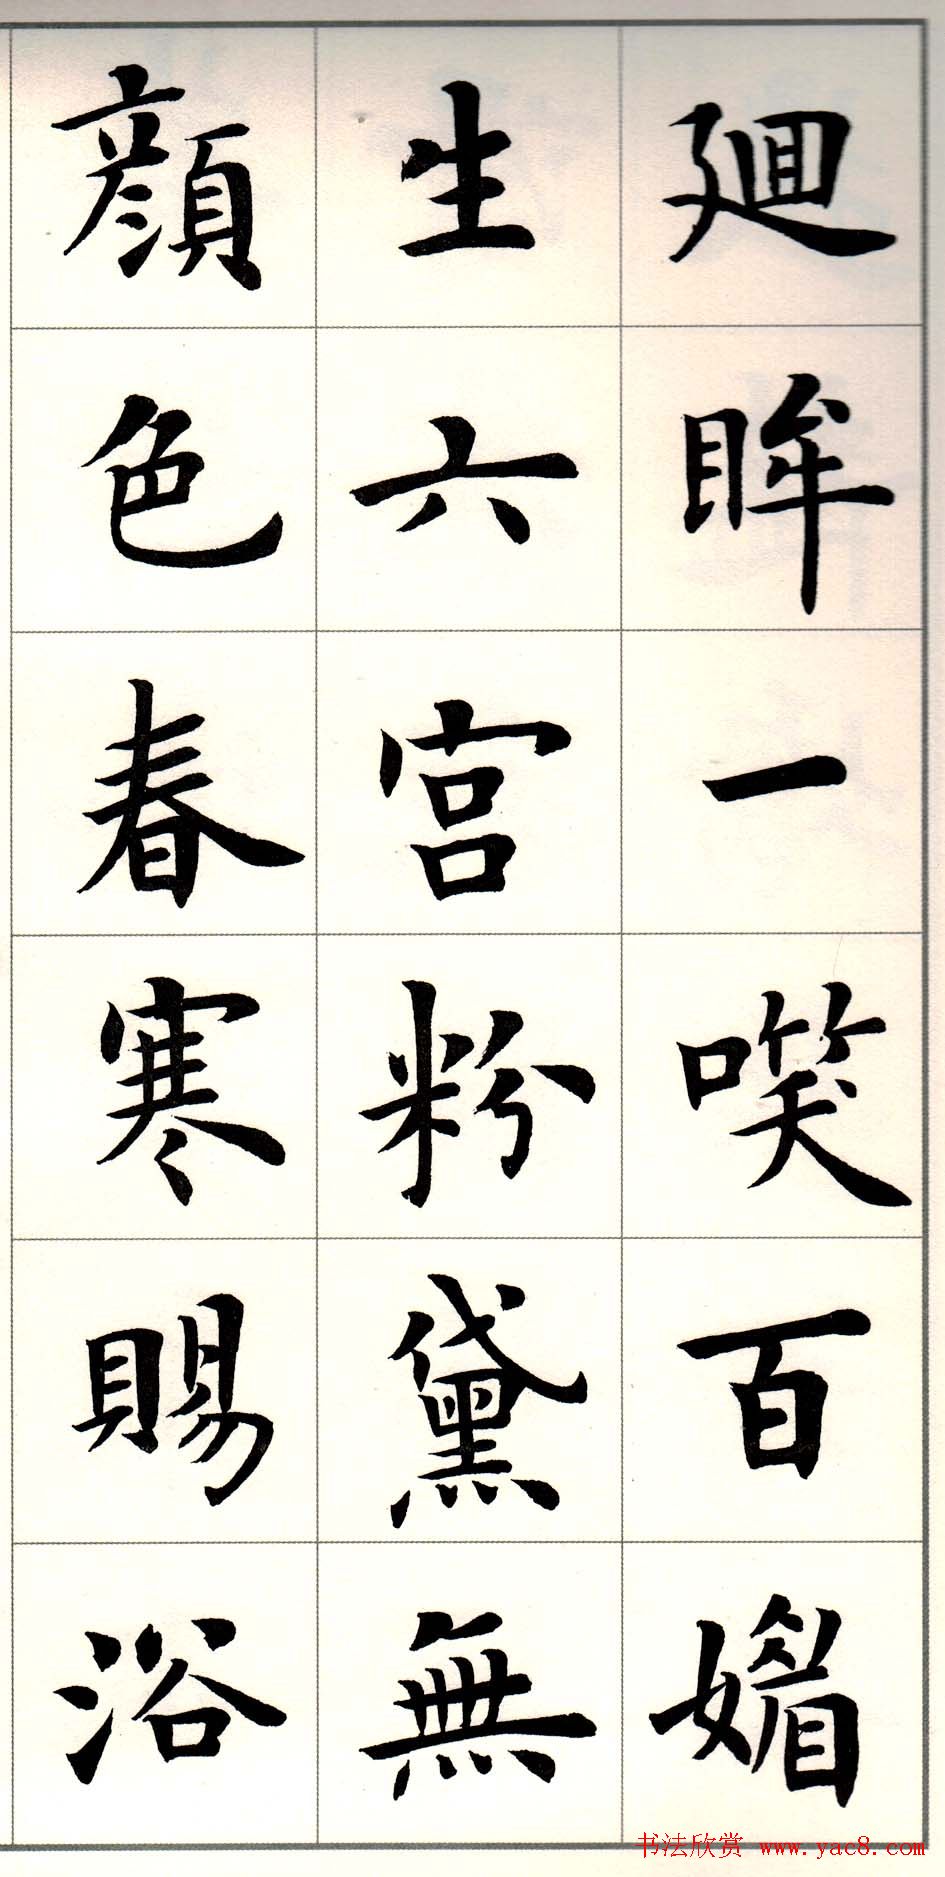 廻眸一㗛百媚
生六宮粉黛無
顔色春寒賜浴
书法欣赏 www.yac8.com